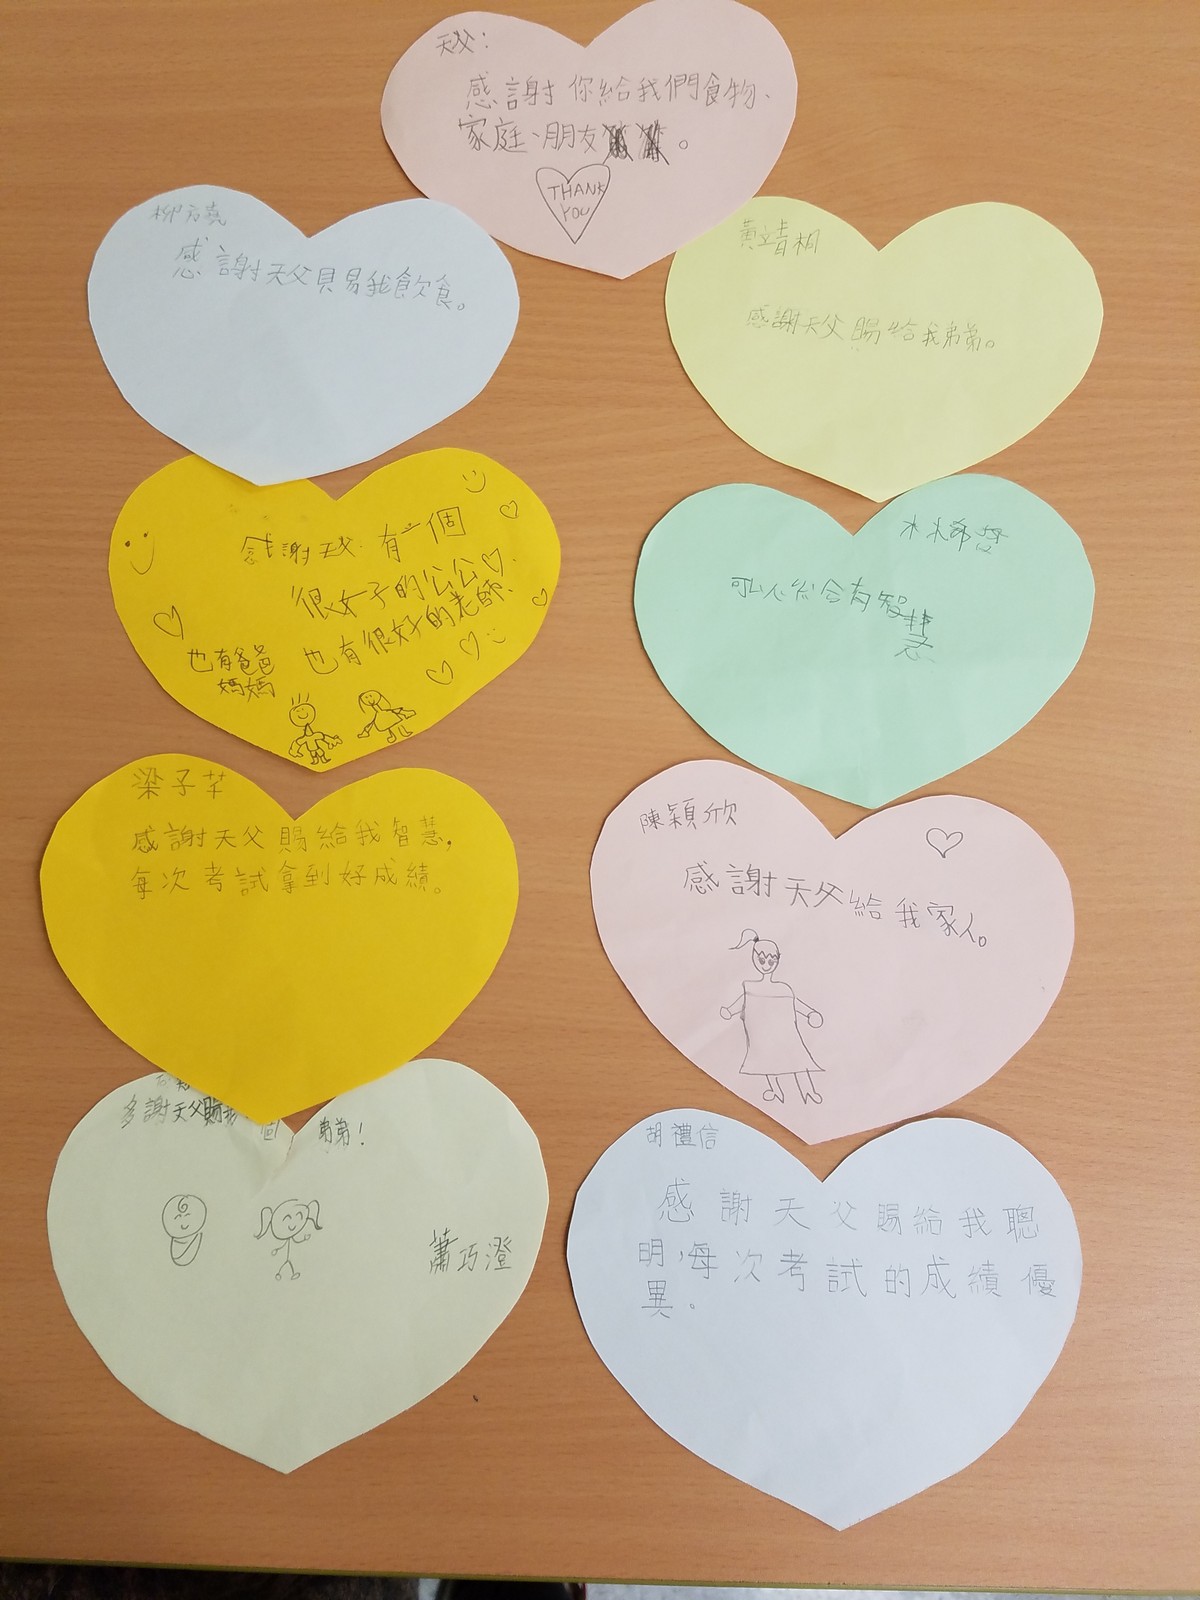 天父：
感謝你給我們食物、
家庭、朋友。
THANK
YOU
柳方堯
感謝天父賜我飲食。
黃靖桐
感謝天父賜給我弟弟。
感謝天父有一個
很好的公公
也有很好的老師
也有爸爸
媽媽
林希
可以給有智
慧
梁子芊
感謝天父賜給我智慧,
每次考試拿到好成績。
陳穎欣
感謝天父給我家人。
多謝天父賜我 個 弟弟！
蕭巧澄
胡禮信
感謝天父賜給我聰
明,每次考試的成績優
異.